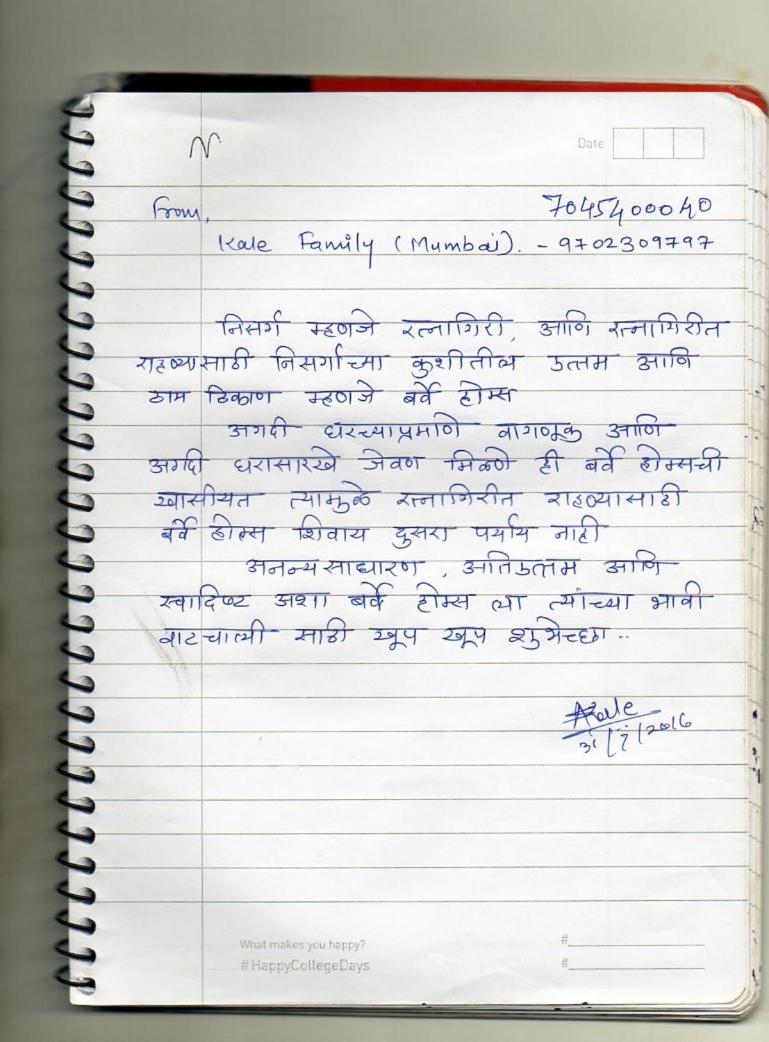 Date
From, 7045400040
Kale Family (Mumbai). - 9702309797
निसर्ग म्हणजे रत्नागिरी, आणि रत्नागिरीत
राहण्यासाठी निसर्गाच्या कुशीतील उत्तम आणि
ठाम ठिकाण म्हणजे बर्वे होम्स
अगदी घरच्याप्रमाणे वागणूक आणि
अगदी घरासारखे जेवण मिळणे ही बर्वे होम्सची
खासीयत त्यामुळे रत्नागिरीत राहण्यासाठी
बर्वे होम्स शिवाय दुसरा पर्याय नाही
अनन्यसाधारण, अतिउत्तम आणि
स्वादिष्ट अशा बर्वे होम्स ला त्यांच्या भावी
वाटचाली साठी खूप खूप शुभेच्छा..
Kale
31/7/2016
What makes you happy? #
#HappyCollegeDays #